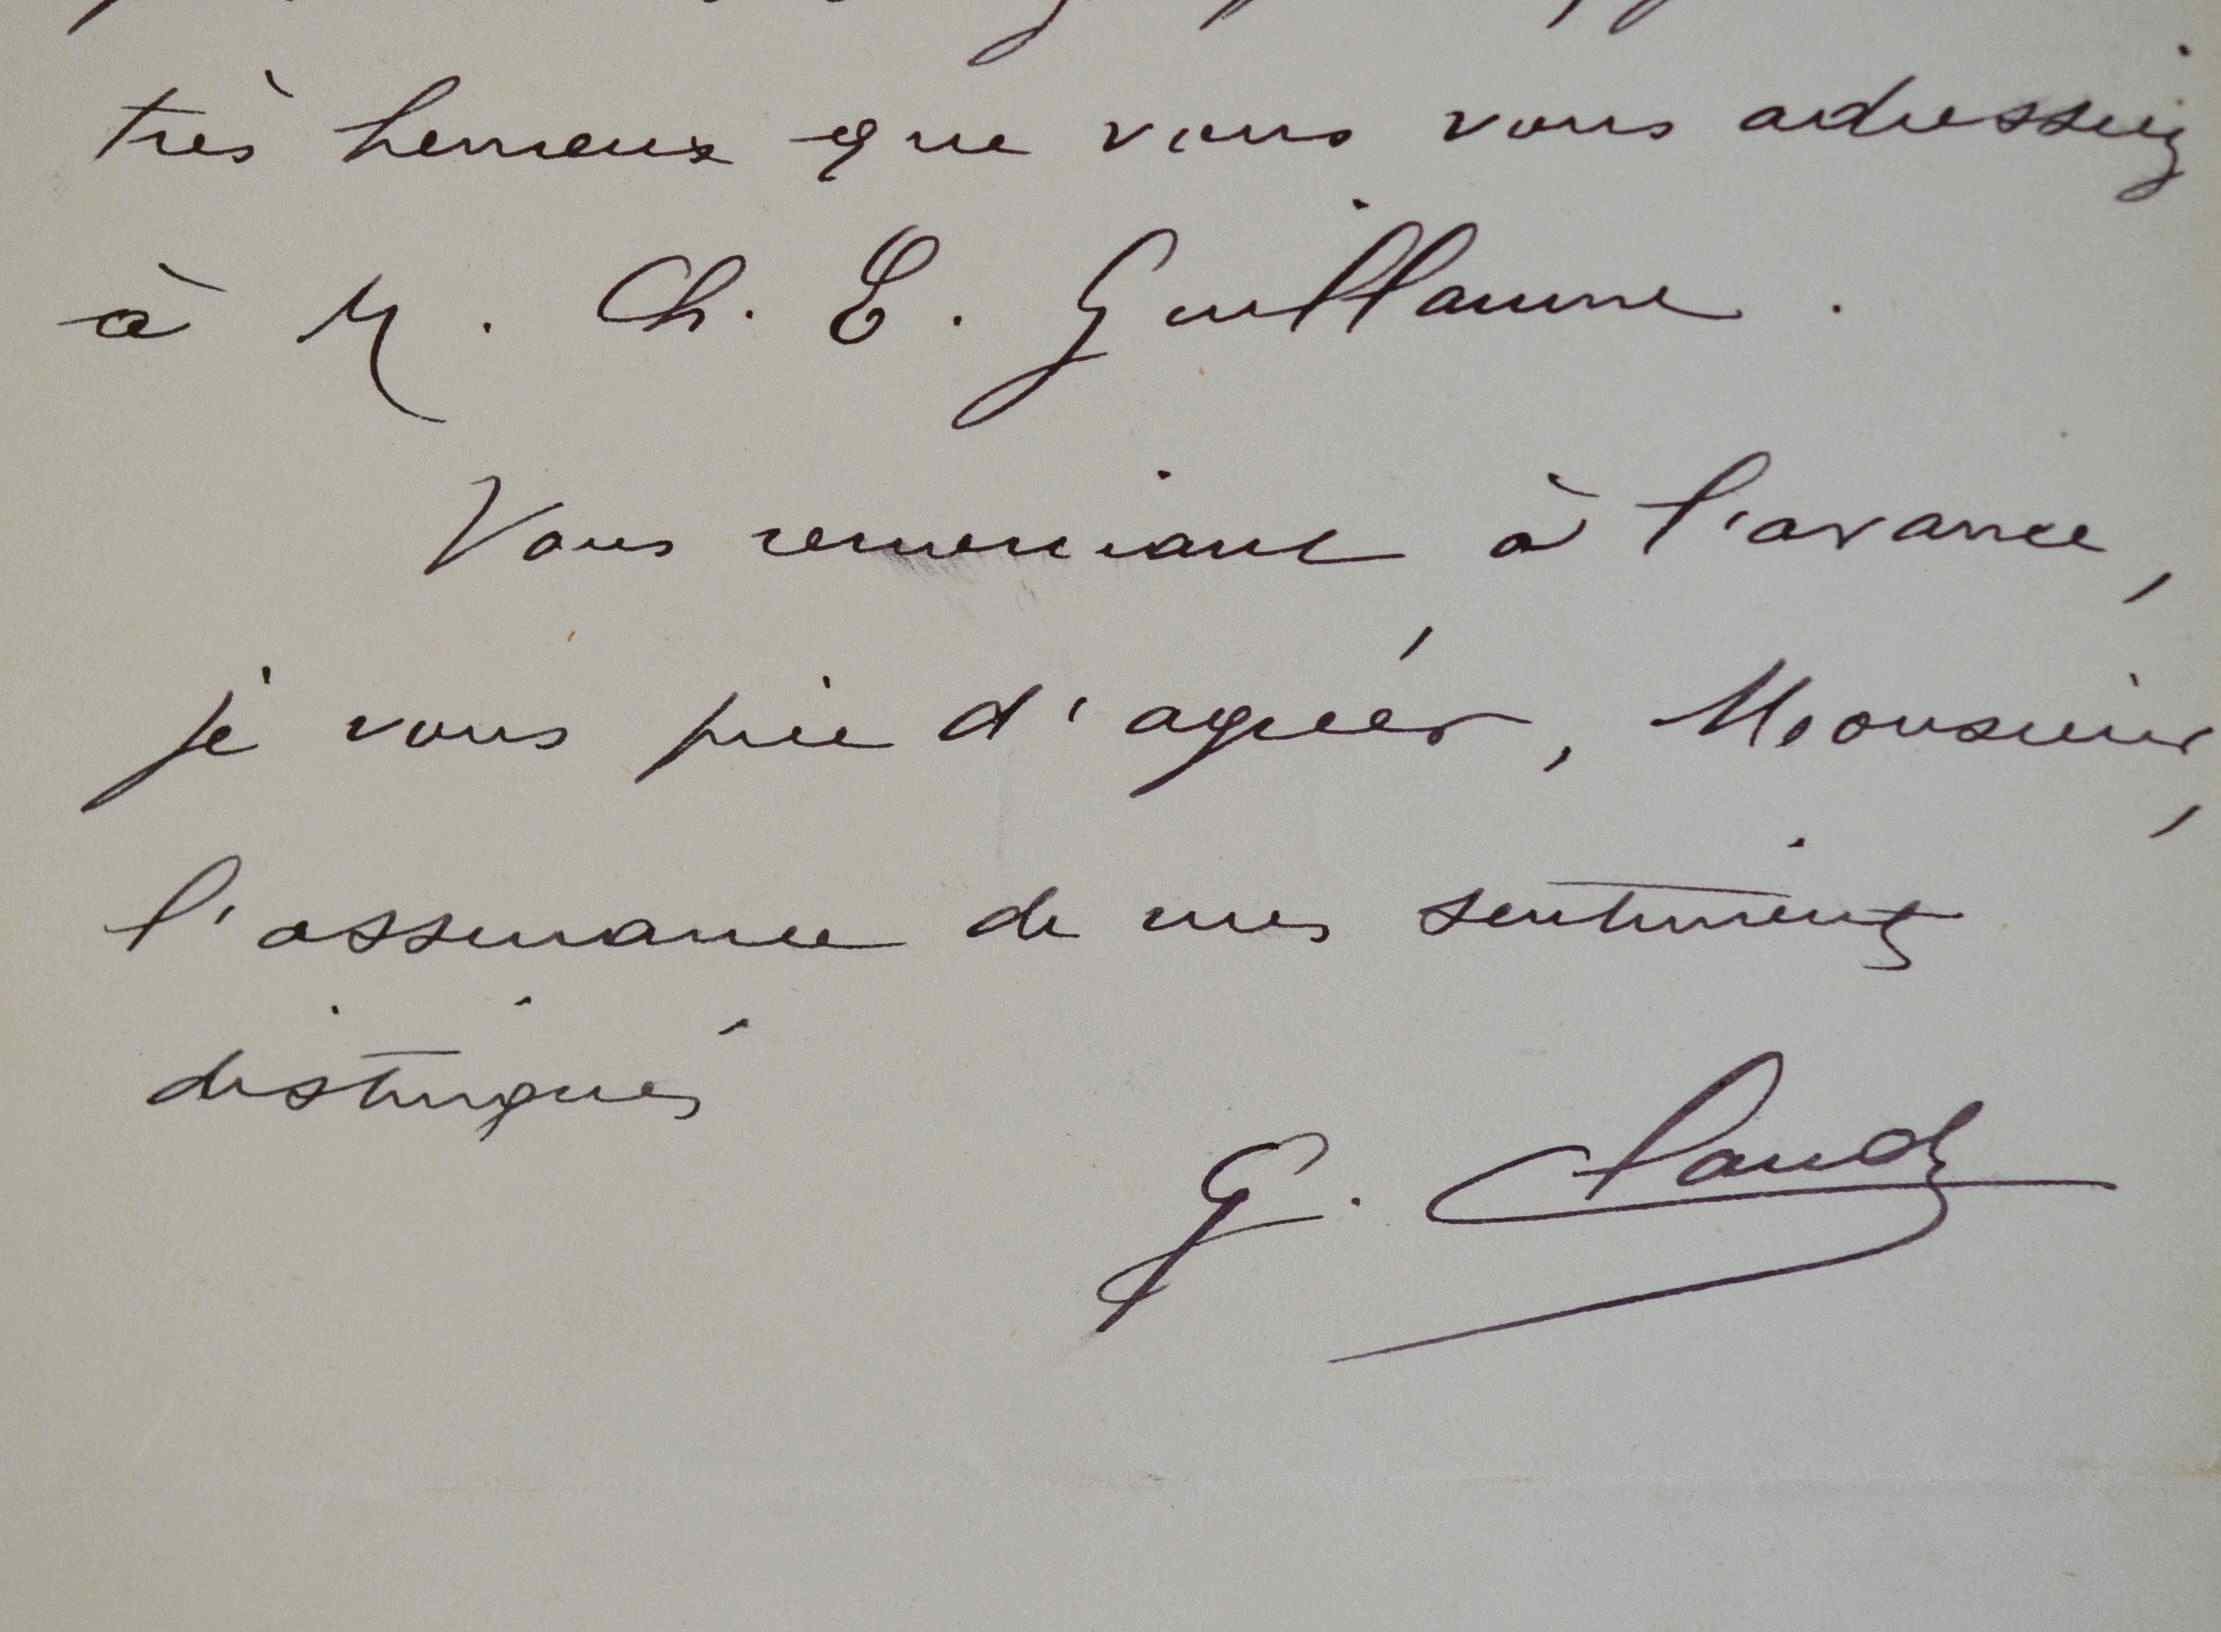 très heureux que vous vous adressiez
à M. Ch. E. Guillaume.
Vous remerciant à l'avance,
je vous prie d'agréer, Monsieur,
l'assurance de mes sentiments
distingués
G. Claude